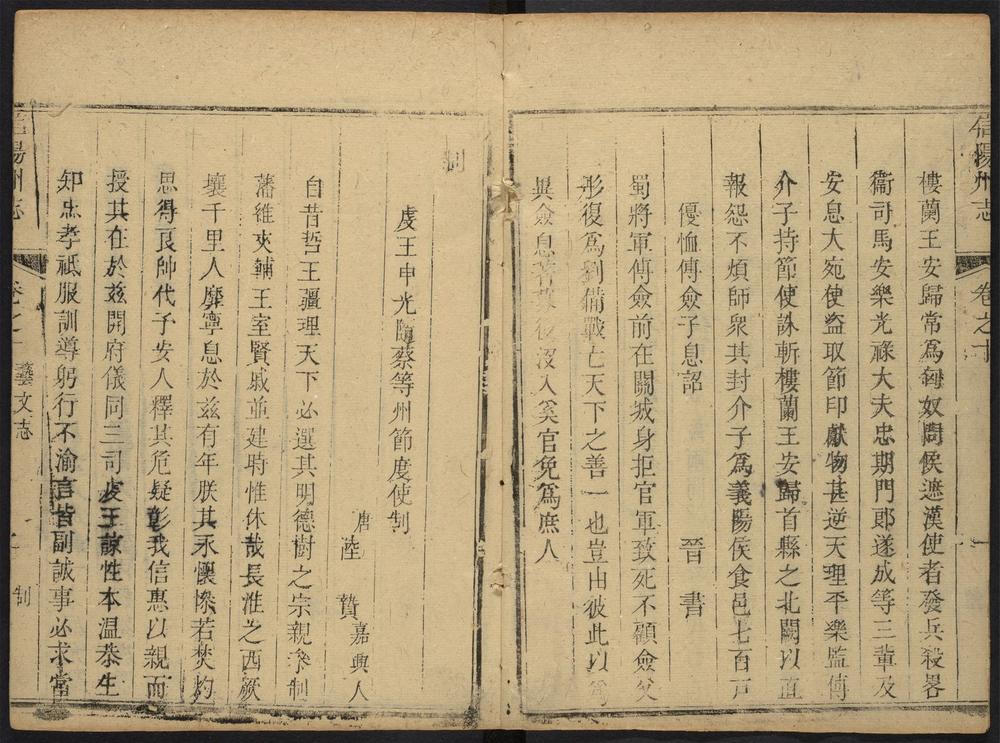 信陽州志
卷之十
樓蘭王安歸常為匈奴間候遮漢使者發兵殺畧
衞司馬安樂光祿大夫忠期門郞遂成等三輩及
安息大宛使盜取節印獻物甚逆天理平樂監傅
介子持節使誅斬樓蘭王安歸首縣之北闕以直
報怨不煩師衆其封介子為義陽侯食邑七百戸
優恤傅僉子息詔 晉書
蜀將軍傅僉前在關城身拒官軍致死不顧僉父
肜復為劉備戰亡天下之善一也豈由彼此以為
異僉息著募後沒入奚官免為庶人
制
虔王申光隨蔡等州節度使制
唐陸 贄嘉興人
自昔哲王疆理天下必選其明德樹之宗親參制
藩維夾輔王室賢戚並建時惟休哉長淮之西厥
壤千里人靡寧息於兹有年朕其永懷憯若焚灼
思得良帥代予安人釋其危疑彰我信惠以親而
授其在於兹開府儀同三司虔王諒性本溫恭生
知忠孝祗服訓導躬行不渝言皆副誠事必求當
信陽州志
卷之
藝文志
制